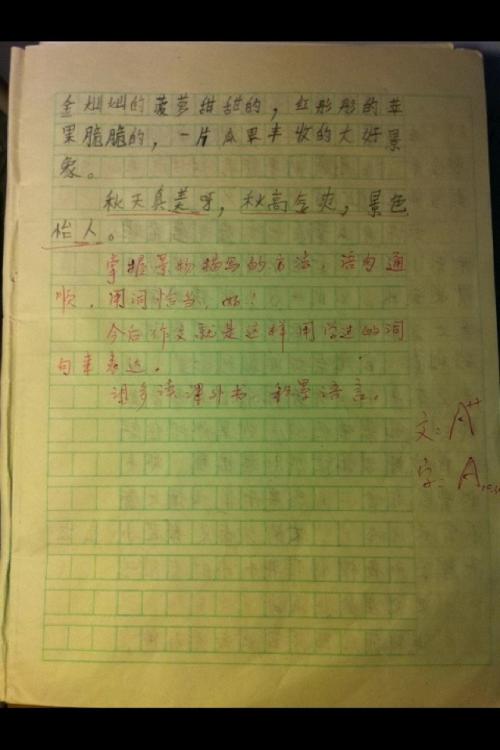 金灿灿的菠萝甜甜的，红彤彤的苹
果脆脆的，一片瓜果丰收的大好景
象。
秋天真美呀，秋高气爽，景色
怡人。
掌握景物描写的方法，语句通
顺，用词恰当，好！
今后作文就是这样用学过的词
句来表达。
请多读课外书，积累语言。
文：A++
字：A